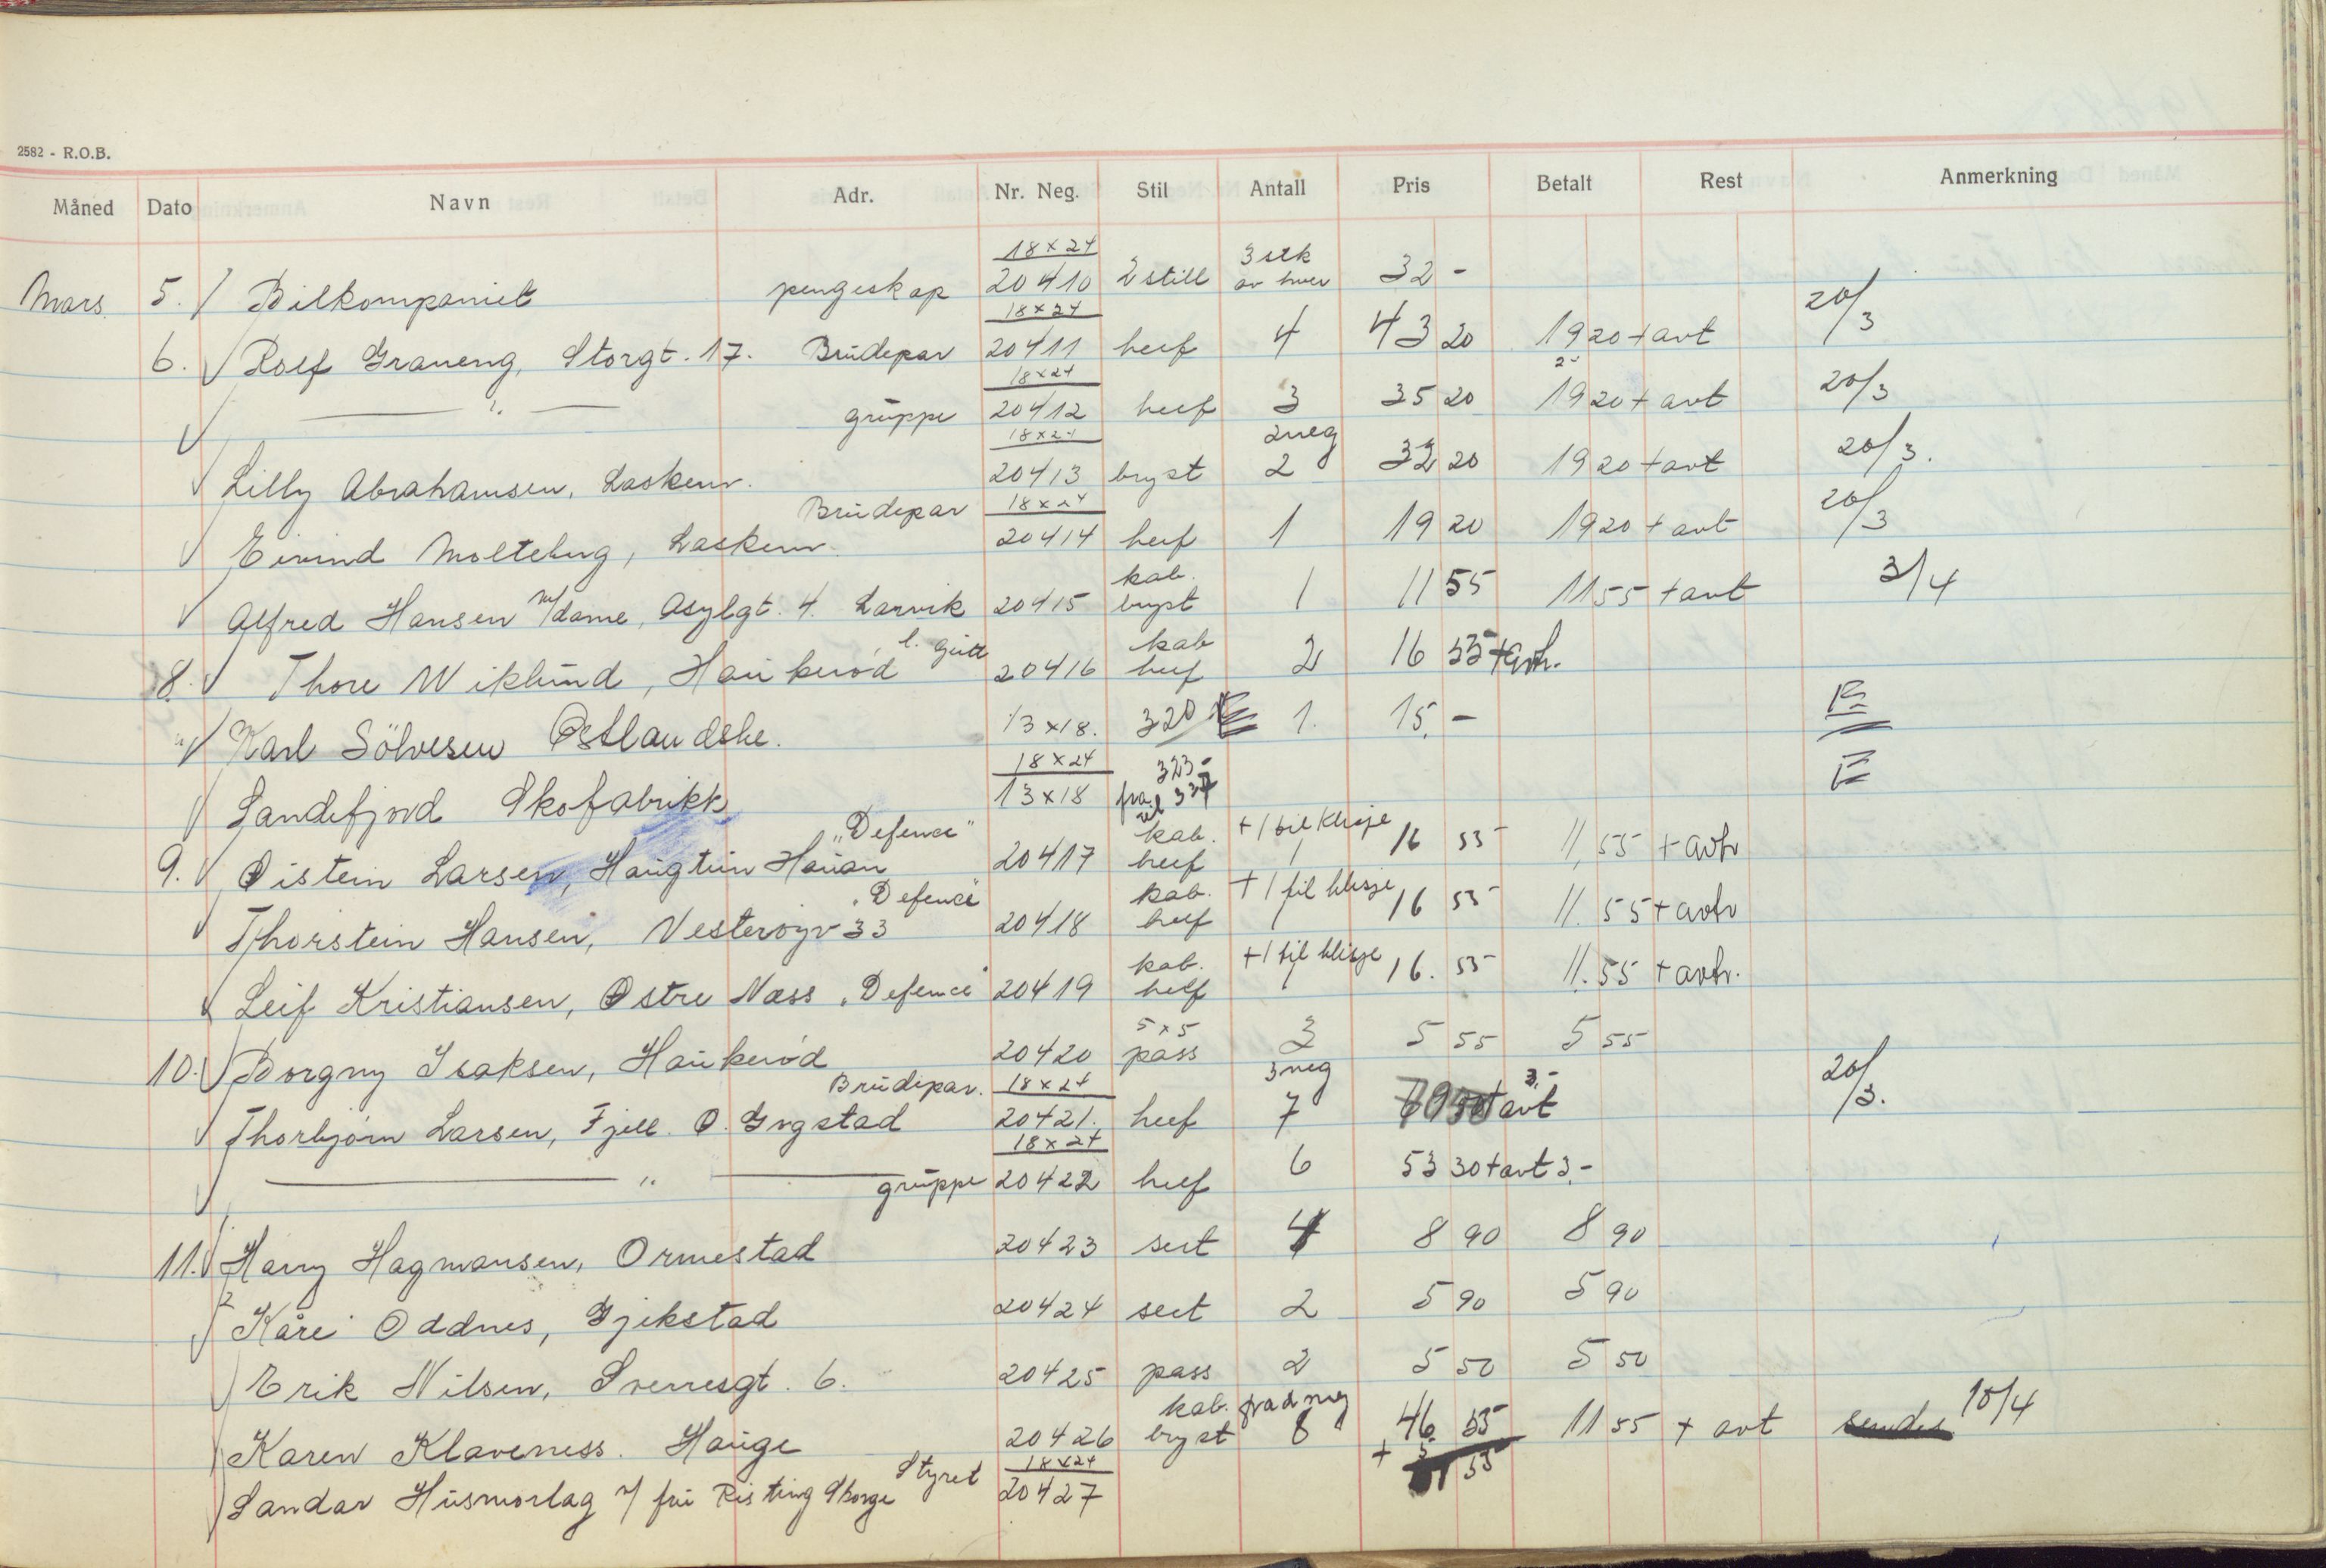 2582 - R.O.B.
Måned Dato Navn Adr. Nr. Neg. Stil Antall Pris Betalt Rest Anmerkning
18 x 24 3 stk
Mars. 5. Bilkompaniet pengeskap 20410 2 still av hver 32 -
18 x 24
6. Rolf Graneng, Storgt. 17. Brudepar 20411 heef 4 43 20 19 20 + avt 20/3
18 x 24 2-
— " — gruppe 20412 heef 3 35 20 19 20 + avt 20/3
18 x 24 2 neg
Lilly Abrahamsen, Laskenv. 20413 bryst 2 32 20 19 20 + avt 20/3.
Brudepar 18 x 24
Eivind Molteberg, Laskenv. 20414 heef 1 19 20 19 20 + avt 20/3
kab.
Alfred Hansen m/dame, Asylgt. 4. Larvik 20415 bryst 1 11 55 11 55 + avt 3/4
l. gutt kab
8. Thore Wiklund, Haukerød 20416 heef 2 16 55 + avt.
Karl Sölvesen Østlandske. 13 x 18. 320 1. 15. -
18 x 24 323-
Sandefjord Skofabrikk 13 x 18 fra 337
"Defence" kab. + 1 til klisje
9. Øistein Larsen, Haugtun Hauan 20417 heef 1 16 55 11, 55 + avt
"Defence" kab. + 1 til klisje
Thorstein Hansen, Vesterøyv 33 20418 heef 1 16 55 11. 55 + avt
kab. + 1 til klisje
Leif Kristiansen, Østre Næss "Defence" 20419 heef 1 16. 55 11. 55 + avt.
5 x 5
10. Borgny Isaksen, Haukerød 20420 pass 3 5 55 5 55
Brudepar. 18 x 24 3 neg 3,-
Thorbjørn Larsen, Fjell. O. Gogstad 20421. heef 7 + avt 20/3.
18 x 24
— " — gruppe 20422 heef 6 53 30 + avt 3,-
11. Harry Hagmansen, Ormestad 20423 sert 4 8 90 8 90
Kåre Oddnes, Gjekstad 20424 sert 2 5 90 5 90
Erik Nilsen, Sverresgt. 6. 20425 pass 2 5 50 5 50
kab. fra 2 neg
Karen Klaveness. Hauge 20426 bryst 8 46. 55 11 55 + avt sendes 10/4
Styret 18 x 24 + 5
Sandar Husmorlag v/ fru Risting Skorge 20427 51 55